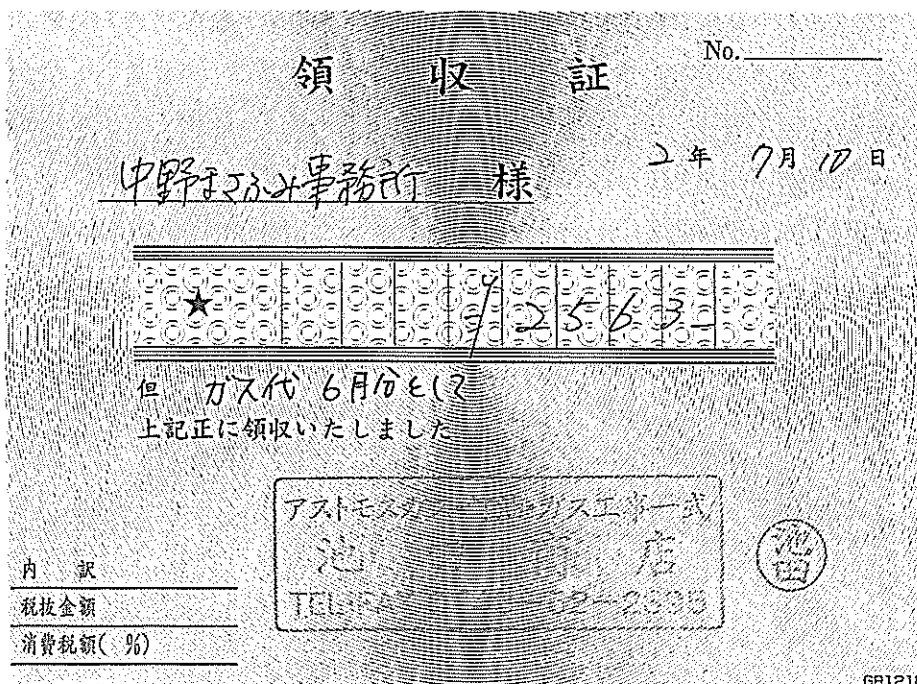 No.
領 収 証
中野まさふみ事務所 様
2年 7月10日
★ ¥2563-
但 ガス代 6月分として
上記正に領収いたしました
アストモスガス ガス工事一式
池 店
TEL
池田
内 訳
税抜金額
消費税額( %)
GR121